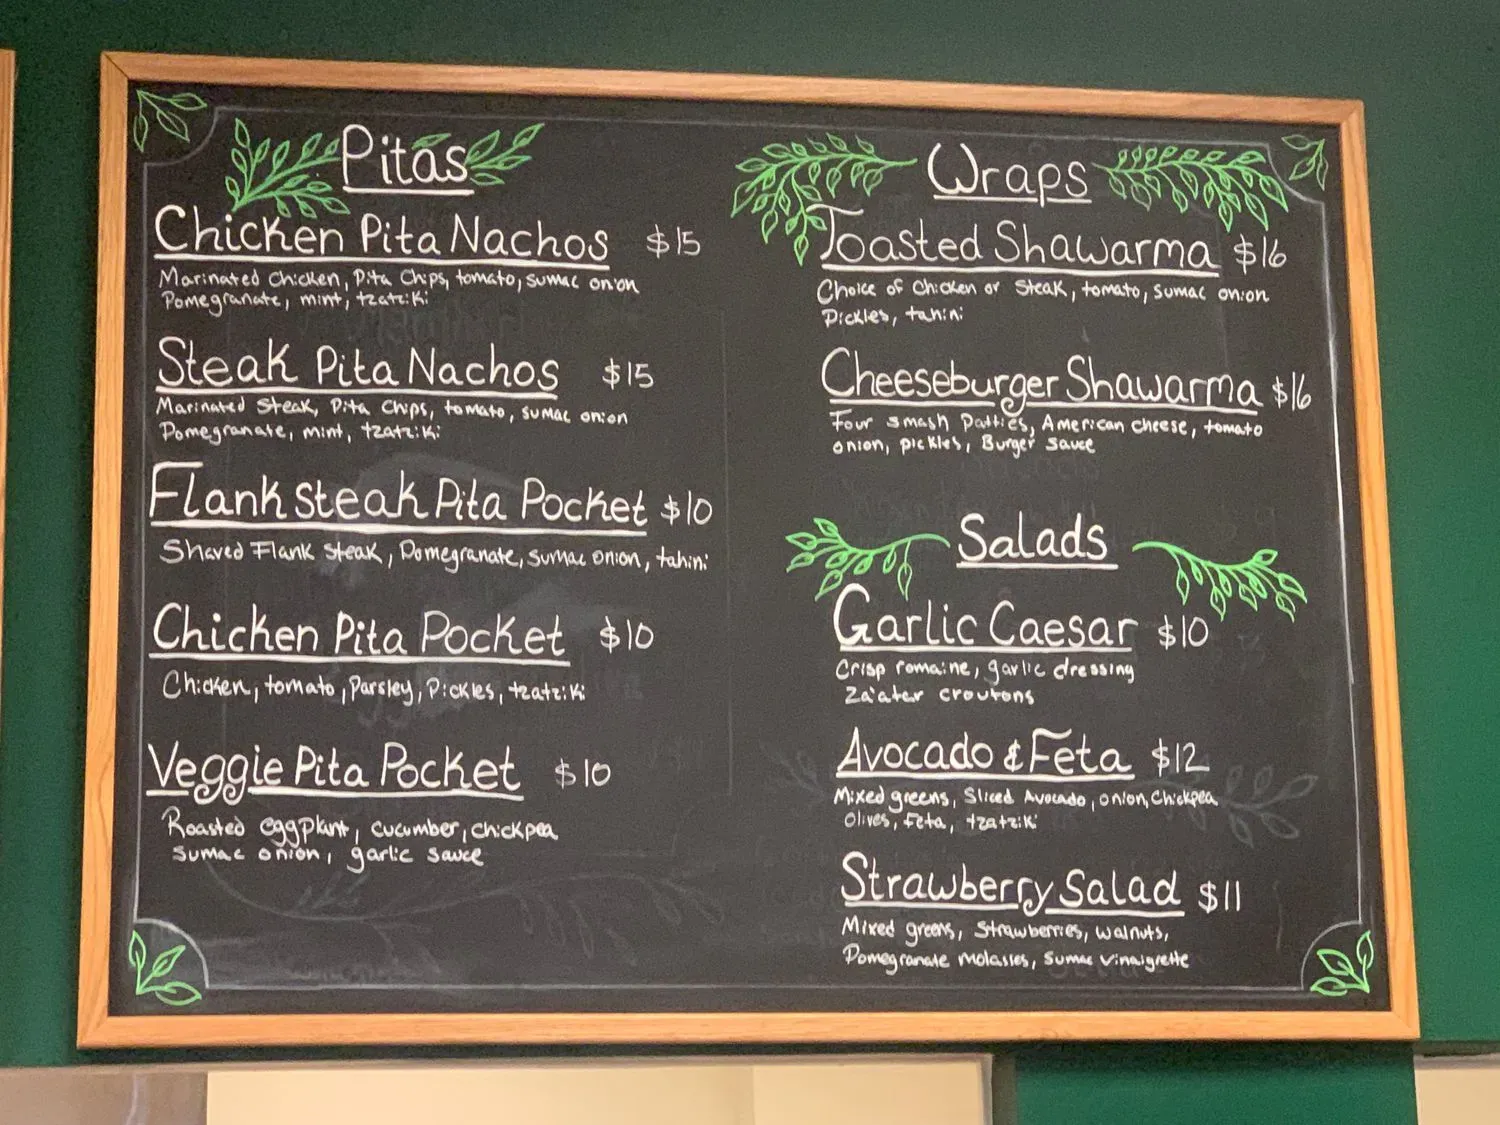 Pitas
Chicken Pita Nachos $15
Marinated Chicken, Pita Chips, tomato, sumac onion
Pomegranate, mint, tzatziki
Steak Pita Nachos $15
Marinated Steak, Pita Chips, tomato, sumac onion
Pomegranate, mint, tzatziki
Flank steak Pita Pocket $10
Shaved Flank Steak, Pomegranate, sumac onion, tahini
Chicken Pita Pocket $10
Chicken, tomato, Parsley, Pickles, tzatziki
Veggie Pita Pocket $10
Roasted eggplant, cucumber, chickpea
sumac onion, garlic sauce
Wraps
Toasted Shawarma $16
Choice of Chicken or Steak, tomato, sumac onion
Pickles, tahini
Cheeseburger Shawarma $16
Four smash Patties, American cheese, tomato
onion, pickles, Burger sauce
Salads
Garlic Caesar $10
Crisp romaine, garlic dressing
Za'atar croutons
Avocado & Feta $12
Mixed greens, Sliced Avocado, onion, Chickpea
Olives, feta, tzatziki
Strawberry Salad $11
Mixed greens, Strawberries, walnuts,
Pomegranate molasses, sumac vinaigrette